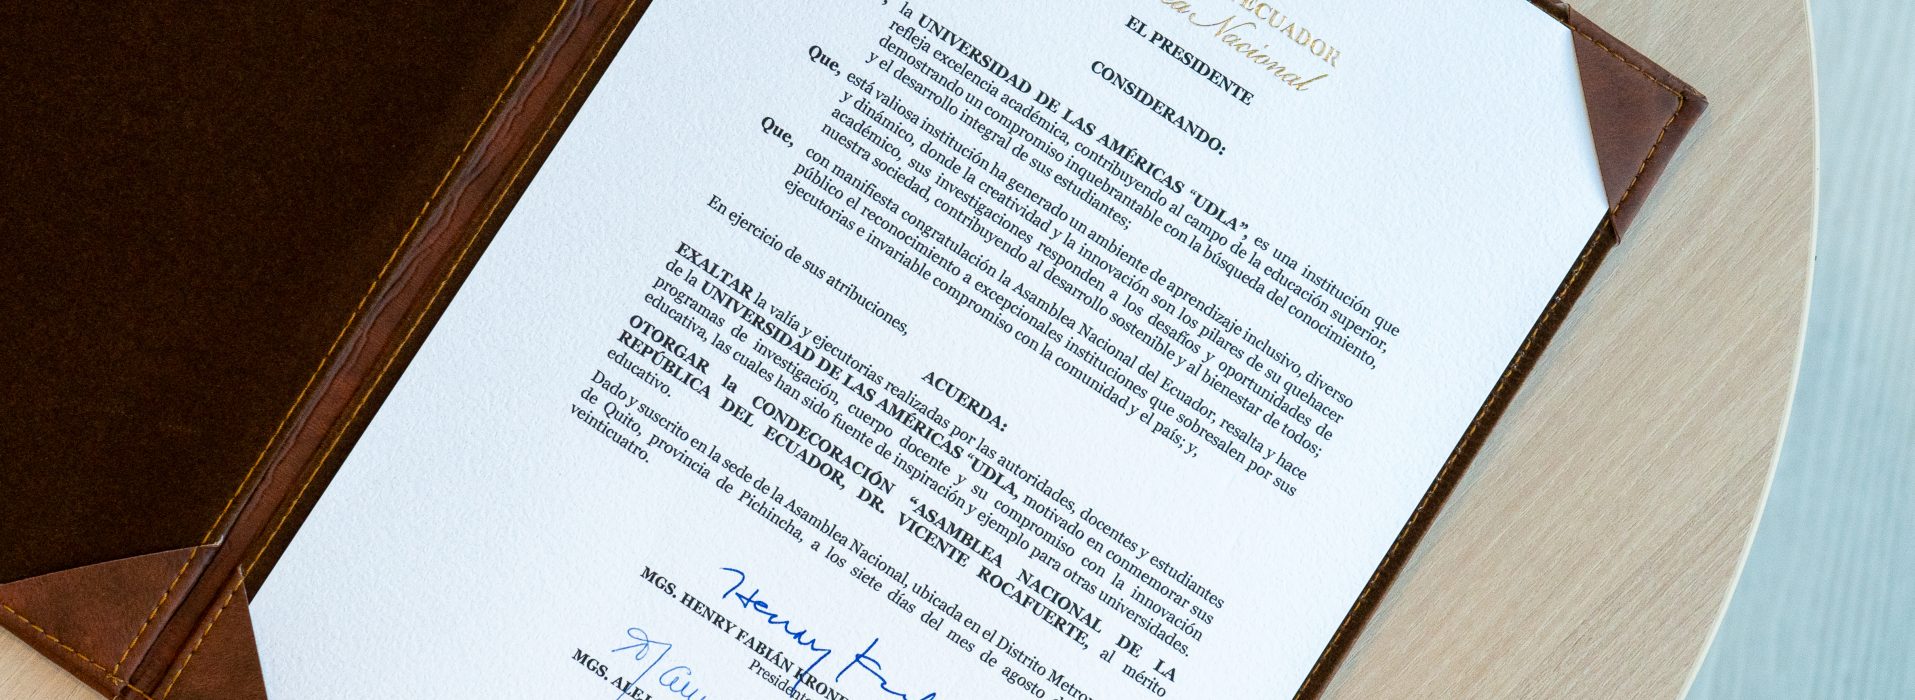 ECUADOR
Nacional
EL PRESIDENTE
CONSIDERANDO:
la UNIVERSIDAD DE LAS AMÉRICAS “UDLA”, es una institución que
refleja excelencia académica, contribuyendo al campo de la educación superior,
demostrando un compromiso inquebrantable con la búsqueda del conocimiento,
y el desarrollo integral de sus estudiantes;
Que, está valiosa institución ha generado un ambiente de aprendizaje inclusivo, diverso
y dinámico, donde la creatividad y la innovación son los pilares de su quehacer
académico, sus investigaciones responden a los desafíos y oportunidades de
nuestra sociedad, contribuyendo al desarrollo sostenible y al bienestar de todos;
Que, con manifiesta congratulación la Asamblea Nacional del Ecuador, resalta y hace
público el reconocimiento a excepcionales instituciones que sobresalen por sus
ejecutorias e invariable compromiso con la comunidad y el país; y,
En ejercicio de sus atribuciones,
ACUERDA:
EXALTAR la valía y ejecutorias realizadas por las autoridades, docentes y estudiantes
de la UNIVERSIDAD DE LAS AMÉRICAS “UDLA, motivado en conmemorar sus
programas de investigación, cuerpo docente y su compromiso con la innovación
educativa, las cuales han sido fuente de inspiración y ejemplo para otras universidades.
OTORGAR la CONDECORACIÓN “ASAMBLEA NACIONAL DE LA
REPÚBLICA DEL ECUADOR, DR. VICENTE ROCAFUERTE, al mérito
educativo.
Dado y suscrito en la sede de la Asamblea Nacional, ubicada en el Distrito Metro
de Quito, provincia de Pichincha, a los siete días del mes de agosto d
veinticuatro.
Henry
MGS. HENRY FABIÁN KRON
President
MGS. ALEJ